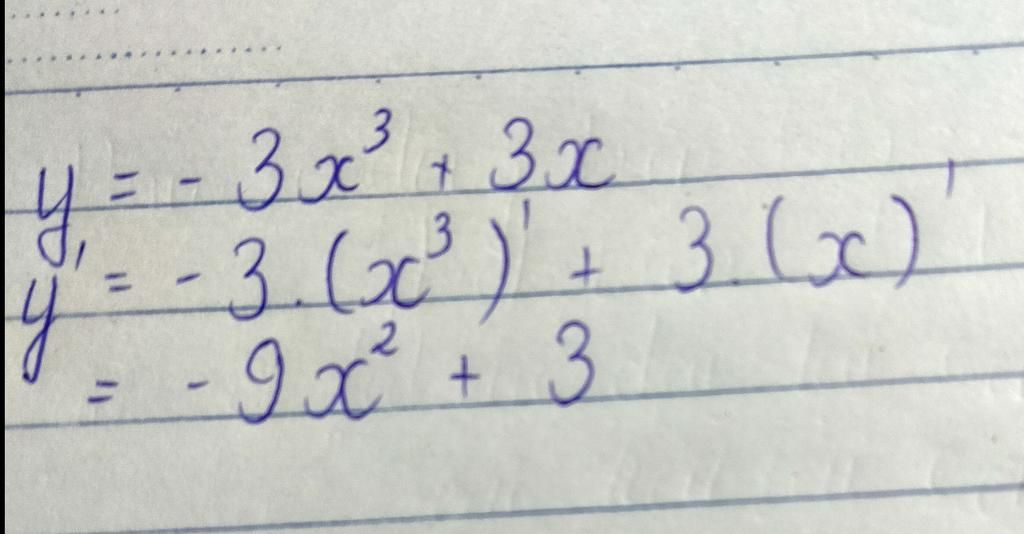 y = - 3x³ + 3x
y' = - 3.(x³)' + 3.(x)'
= - 9x² + 3